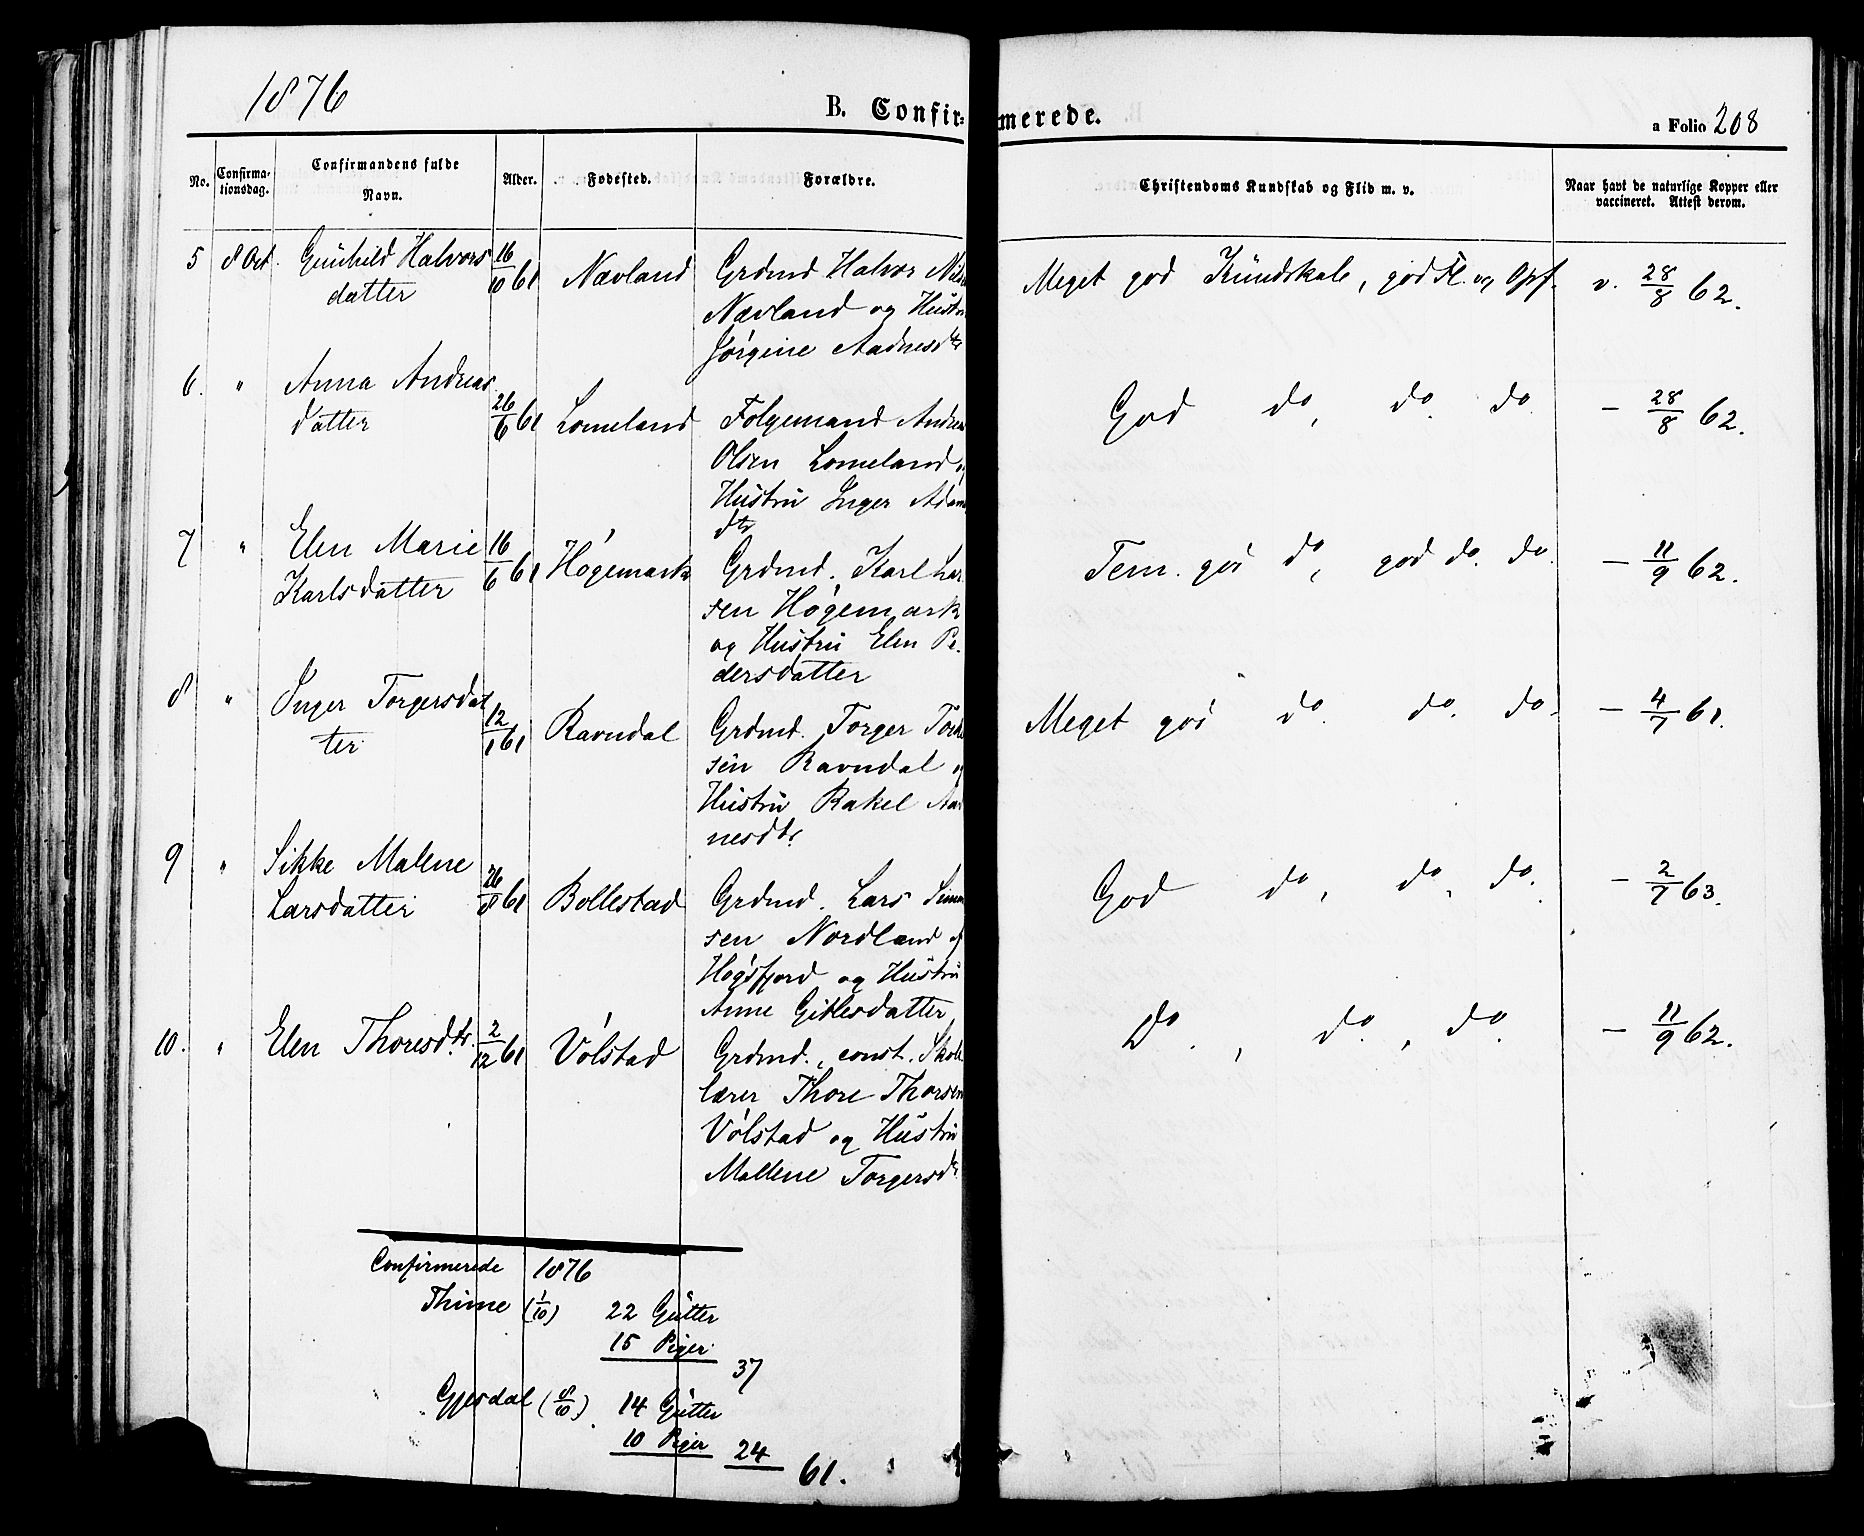 1876
B. Confir=
merede.
a Folio 208
No.
Confirma-
tionsdag.
Confirmandens fulde
Navn.
Alder.
Fødested.
Forældre.
Christendoms Kundskab og Flid m. v.
Naar havt de naturlige Kopper eller
vaccineret. Attest derom.
5 8 Oct. Gunhild Halvors
datter
16/10 61 Nævland
Grdmd Halvor Nils
Nævland og Hustru
Jørgine Aadnesdtr
Meget god Kundskab, god Fl. og Opf. v. 28/8 62.
6. " Anna Andreas
datter
26/6 61 Lomeland
Folgemand Andrea
Olsen Lomeland og
Hustru Inger Adam
dtr
God do, do. do. – 28/8 62.
7 " Elen Marie
Karlsdatter
16/6 61 Høgemark
Grdmd. Karl Lar
sen Høgemark
og Hustru Elen Pe
dersdatter
Tem. god do, god do. do. – 11/9 62.
8 " Inger Torgersdat
ter
12/1 61 Ravndal
Grdmd. Torger Tork
sen Ravndal og
Hustru Rakel Aad
nesdtr.
Meget god do. do. do. – 4/7 61.
9 " Sikke Malene
Larsdatter
26/8 61 Bollestad
Grdmd. Lars Simon
sen Nordland af
Høgsfjord og Hustru
Anne Gitlesdatter
God do, do., do. – 2/7 63.
10. " Elen Thoresdtr.
2/12 61 Vølstad
Grdmd., const. Skole
lærer Thore Thorsen
Vølstad og Hustru
Mallene Torgersdtr
Do., do., do. – 11/9 62.
Confirmerede 1876
Thime (1/10) 22 Gutter
15 Piger
37
Gjesdal (8/10) 14 Gutter
10 Piger 24
61.